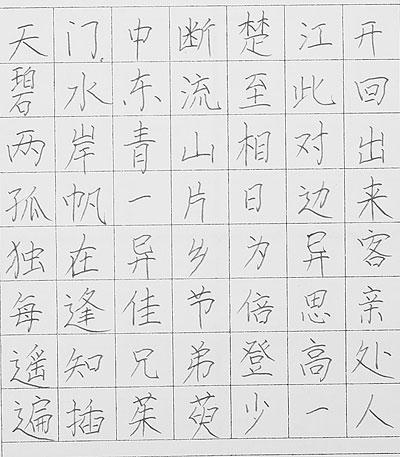 天门中断楚江开
碧水东流至此回
两岸青山相对出
孤帆一片日边来
独在异乡为异客
每逢佳节倍思亲
遥知兄弟登高处
遍插茱萸少一人